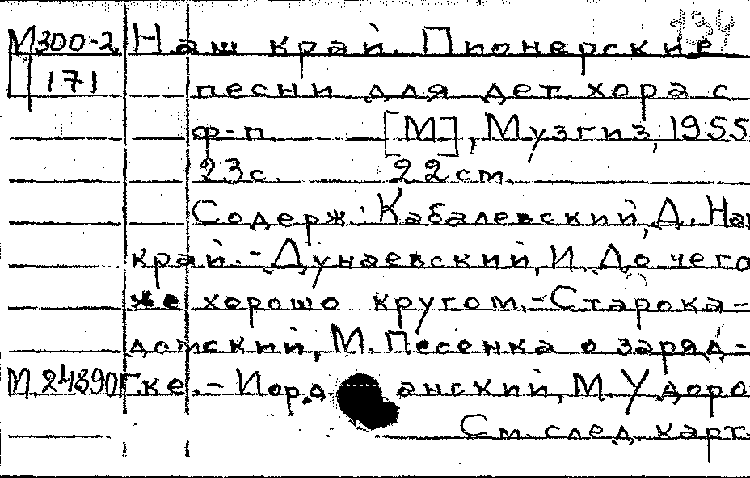 134
М300-2 Наш край. Пионерские
П 171 песни для дет хора с
ф-п [М], Музгиз, 1955
23с. 22см.
Содерж: Кабалевский, Д. На
край. - Дунаевский, И. До чего
же хорошо кругом. - Старока-
домский, М. Песенка о заряд-
М.24890г. ке. - Иорданский, М. У доро
См. след. карт.